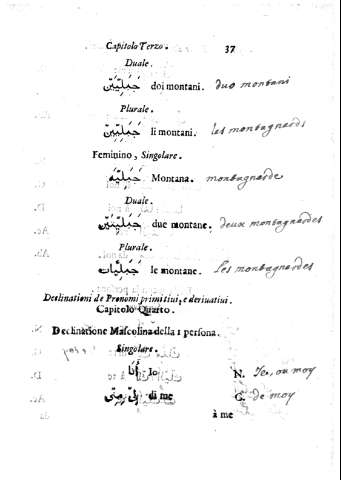 Capitolo Terzo. 37
Duale.
جَبَلِيَّيْن doi montani. duo montani
Plurale.
جَبَلِيِّين li montani. les montagnards
Feminino, Singolare.
جَبَلِيَّة Montana. montagnarde
Duale.
جَبَلِيَّتَيْن due montane. deux montagnardes
Plurale.
جَبَلِيَّات le montane. Les montagnardes
Declinationi de Pronomi primitiui, e deriuatiui.
Capitolo Quarto.
Declinatione Mascolina della 1 persona.
Singolare.
أَنَا Io N. Je, ou moy
di me G. de moy
à me